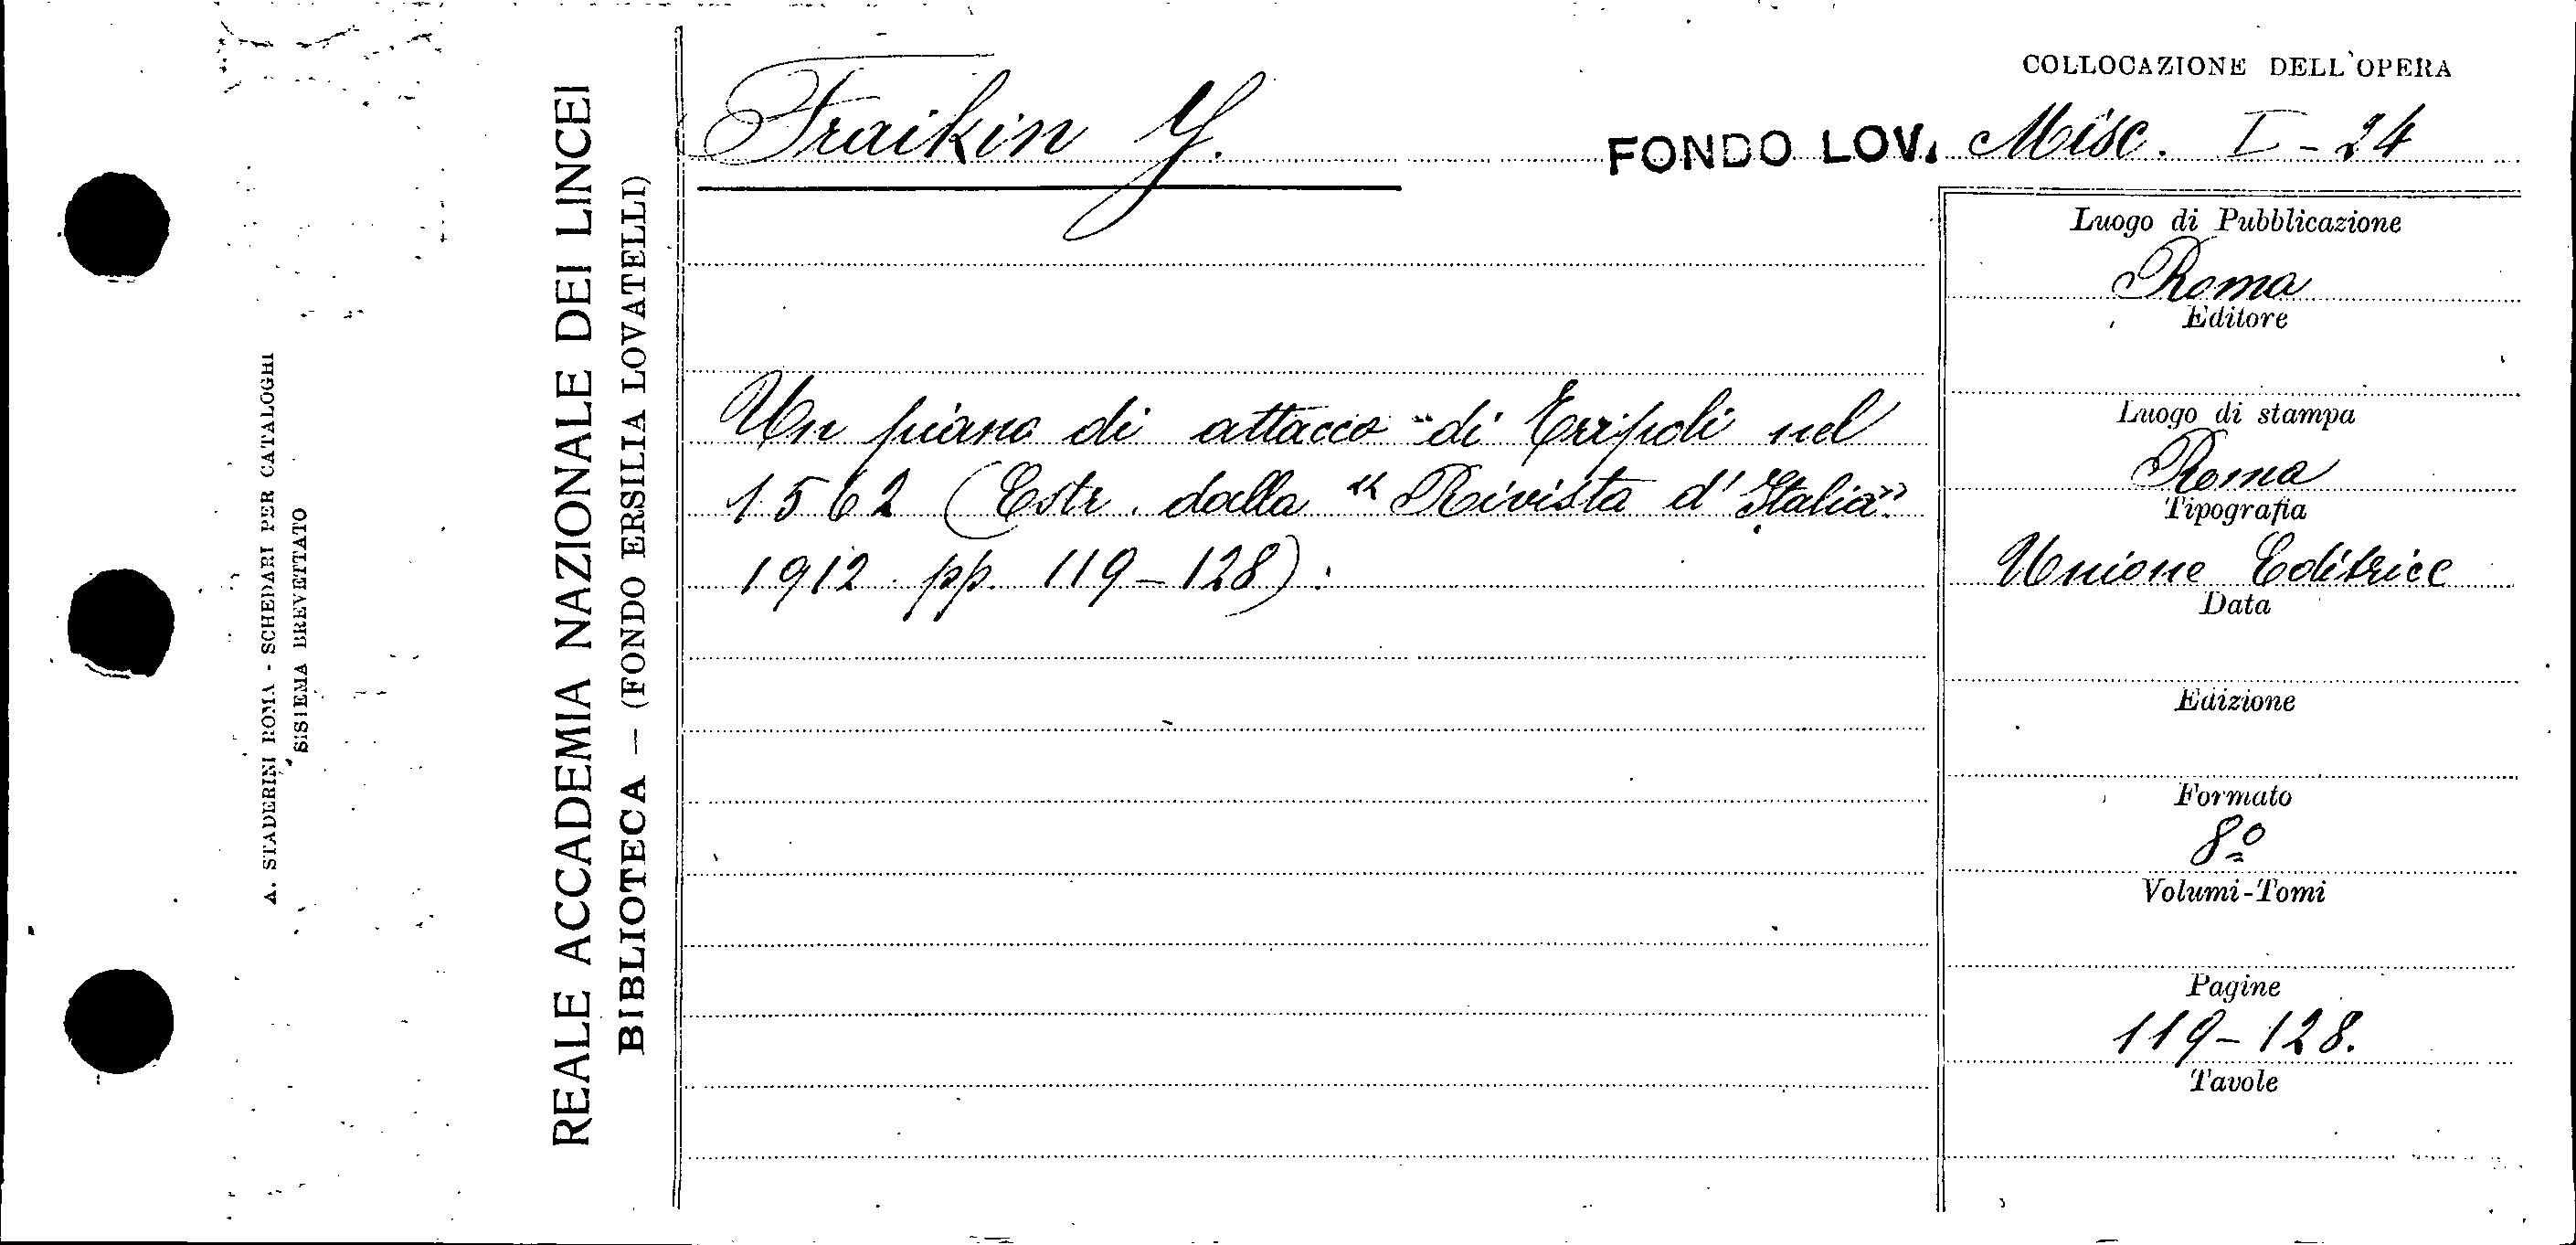 COLLOCAZIONE DELL'OPERA
Fraikin Y.
FONDO LOV. Misc. I - 24
Un piano di attacco di Tripoli nel
1562 (Estr. dalla "Rivista d'Italia"
1912 pp. 119-128).
Luogo di Pubblicazione
Roma
Editore
Luogo di stampa
Roma
Tipografia
Unione Editrice
Data
Edizione
Formato
8º
Volumi-Tomi
Pagine
119-128.
Tavole
REALE ACCADEMIA NAZIONALE DEI LINCEI
BIBLIOTECA — (FONDO ERSILIA LOVATELLI)
A. STADERINI ROMA - SCHEDARI PER CATALOGHI
SISTEMA BREVETTATO